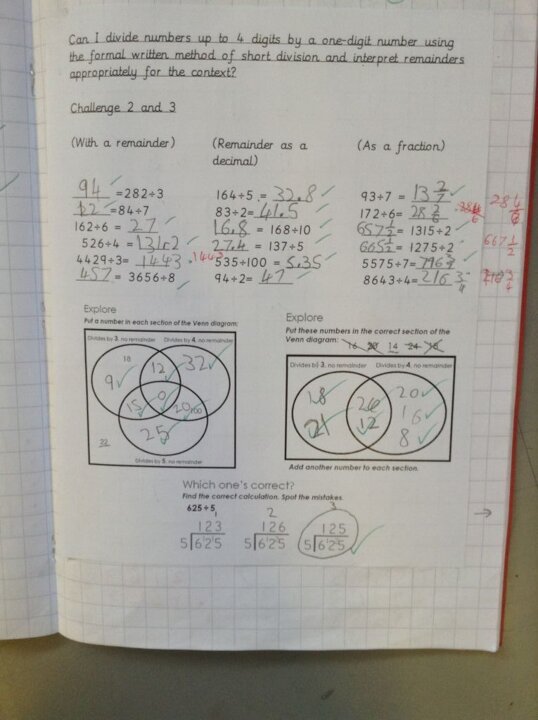 Can I divide numbers up to 4 digits by a one-digit number using
the formal written method of short division and interpret remainders
appropriately for the context?
Challenge 2 and 3
(With a remainder) (Remainder as a decimal) (As a fraction)
94 =282÷3 164÷5 = 32.8 93÷7 = 13 2/7
12 =84÷7 83÷2= 41.5 172÷6= 28 4/6
162÷6 = 27 16.8 = 168÷10 657 1/2 = 1315÷2 667 1/2
526÷4 = 131r2 27.4 = 137÷5 = 1275÷2
4429÷3= 1443 535÷100 = 5.35 5575÷7=
457 = 3656÷8 94÷2= 47 8643÷4=
Explore
Put a number in each section of the Venn diagram:
Divides by 3, no remainder Divides by 4, no remainder
18 12 32
9
15 0 20
25
32
Divides by 5, no remainder
Explore
Put these numbers in the correct section of the
Venn diagram: 16 20 14 24 18
Divides by 3, no remainder Divides by 4, no remainder
18 24 20
21 12 16
8
Add another number to each section.
Which one's correct?
Find the correct calculation. Spot the mistakes.
625÷5
123 126 125
5 625 5 625 5 625